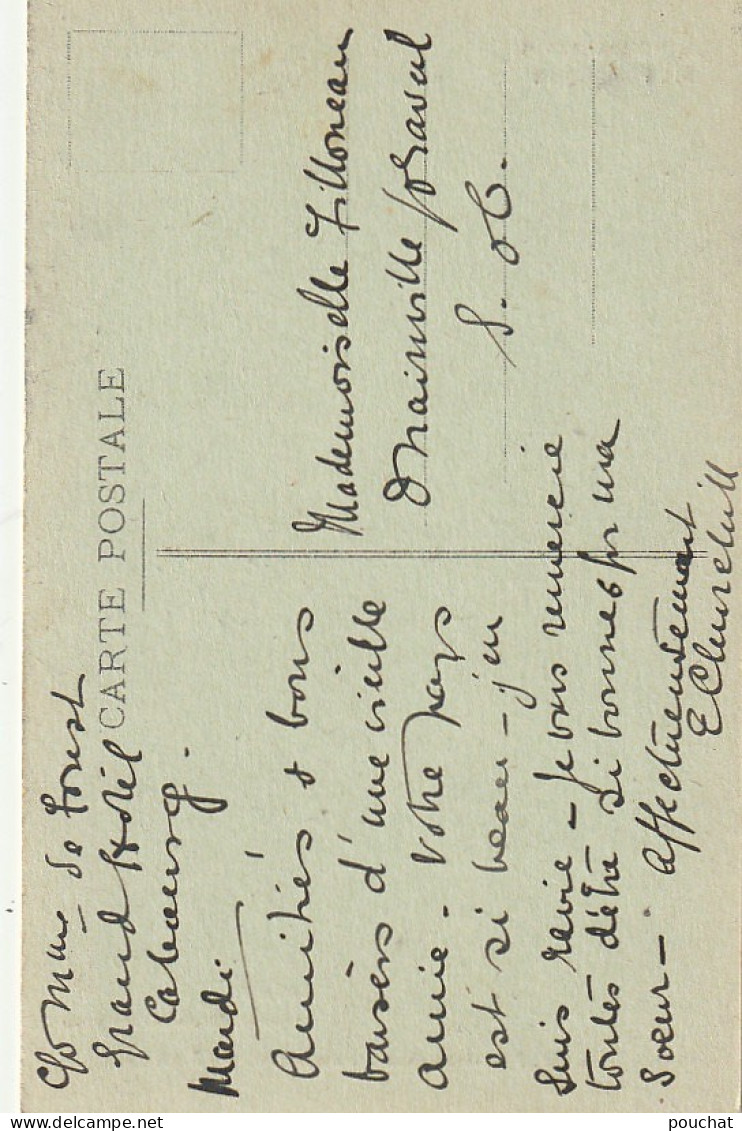 c/o Mme de Forest
Grand Hôtel
Cabourg.
Mardi
CARTE POSTALE
Amitiés & bons
baisers d'une vieille
amie. Votre pays
est si beau - j'en
suis ravie - je vous remercie
toutes d'être si bonnes pr ma
soeur - Affectueusement
E
Mademoiselle Filloneau
par
S. & O.
pouchat
Delcampe.net